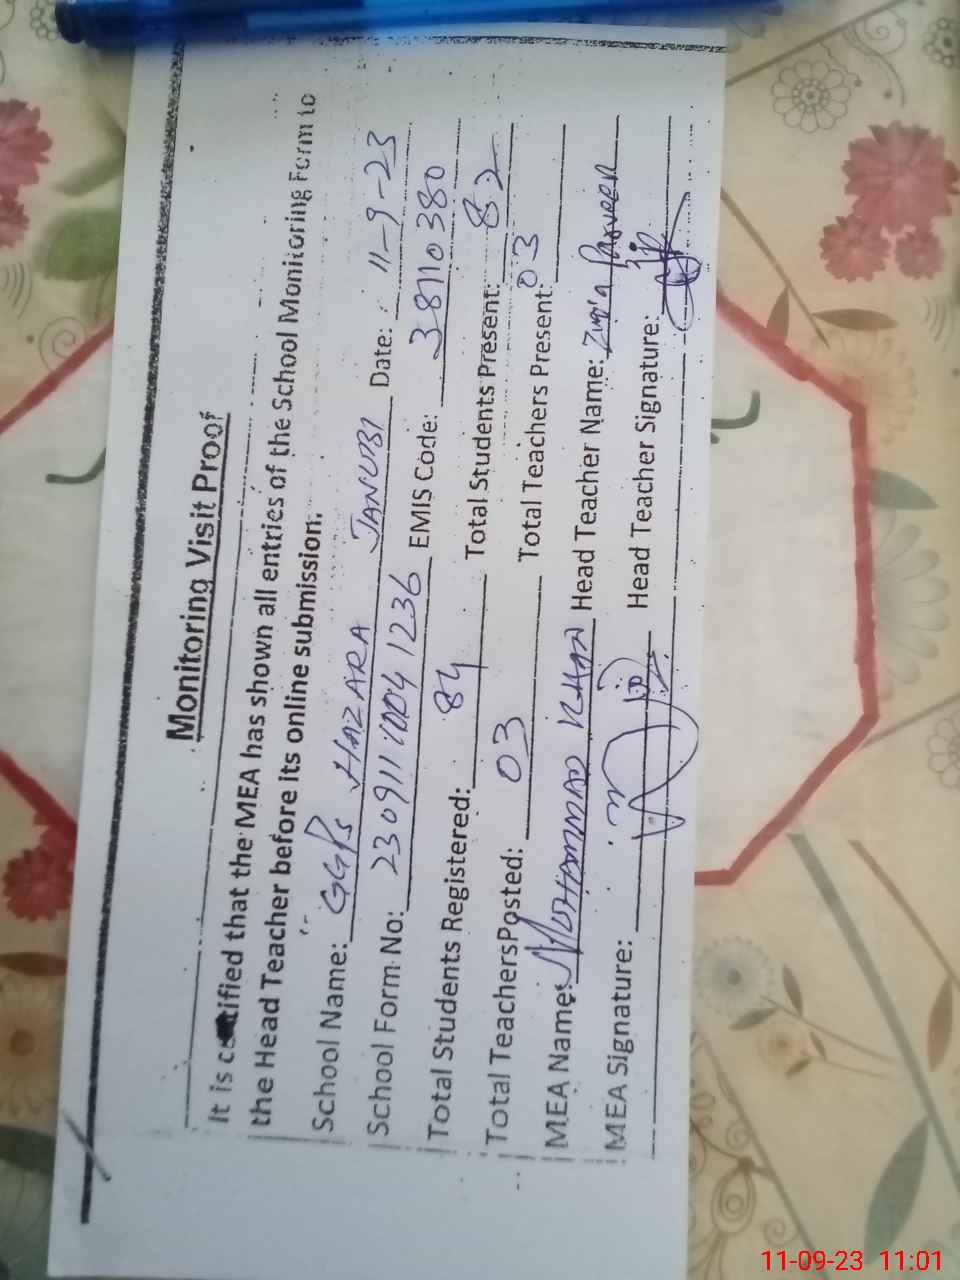 Monitoring Visit Proof
It is certified that the MEA has shown all entries of the School Monitoring Form to
the Head Teacher before its online submission.
School Name: GGPS HAZARA JANUBI Date: 11-9-23
School Form No: 230911 10041236 EMIS Code: 38110380
Total Students Registered: 84 Total Students Present: 82
Total Teachers Posted: 03 Total Teachers Present: 03
MEA Name: KHAN Head Teacher Name: Parveen
MEA Signature: Head Teacher Signature:
11-09-23 11:01